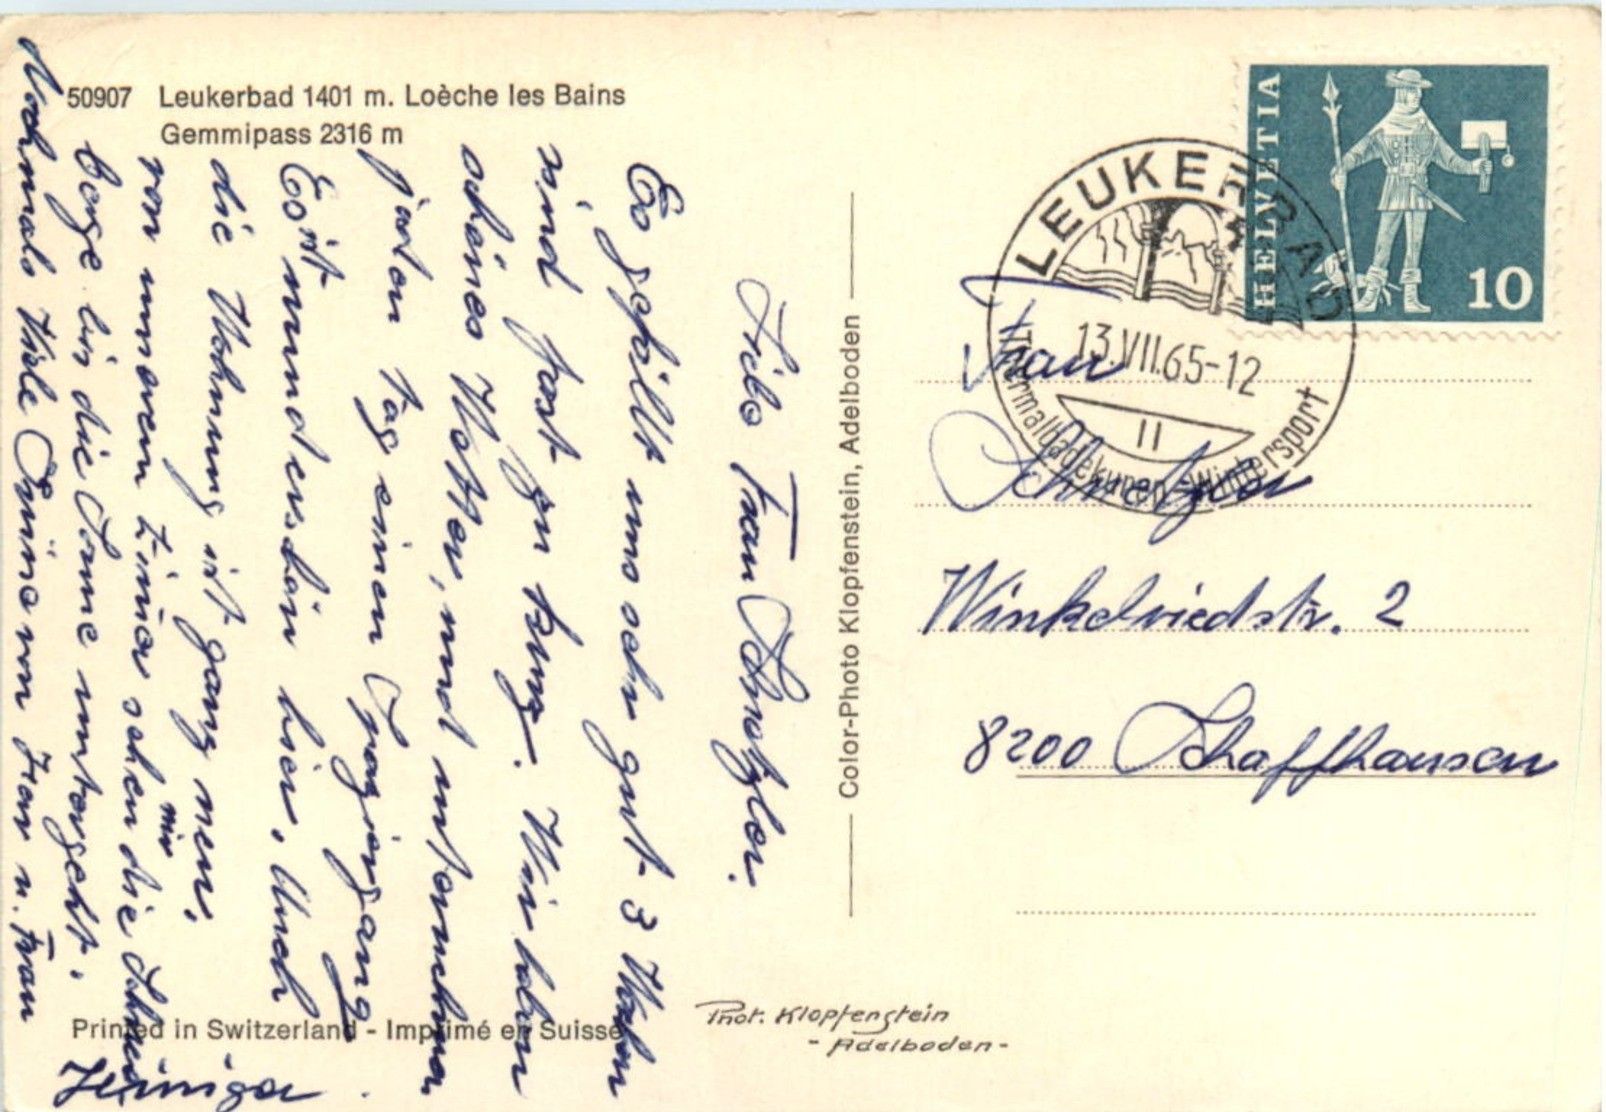 50907 Leukerbad 1401 m. Loèche les Bains
Gemmipass 2316 m
Liebe Frau Schnetzler.
Es gefällt uns sehr gut 3 Wochen
sind fast zu kurz. Wir haben
schönes Wetter, und unternehmen
jeden Tag einen Spaziergang
Es ist wunderbar hier. Auch
die Wohnung ist ganz neu.
von unseren Zimer sehen wir die Schnee
berge bis die Sonne untergeht.
Nochmals Viele Grüsse von Herr u. Frau
Heiniger
Color-Photo Klopfenstein, Adelboden
Printed in Switzerland - Imprimé en Suisse
Phot. Klopfenstein
- Adelboden -
HELVETIA
10
LEUKERBAD
13.VII.65-12
II
Thermalbadekuren - Wintersport
Frau
Schnetzler
Winkelriedstr. 2
8200 Schaffhausen